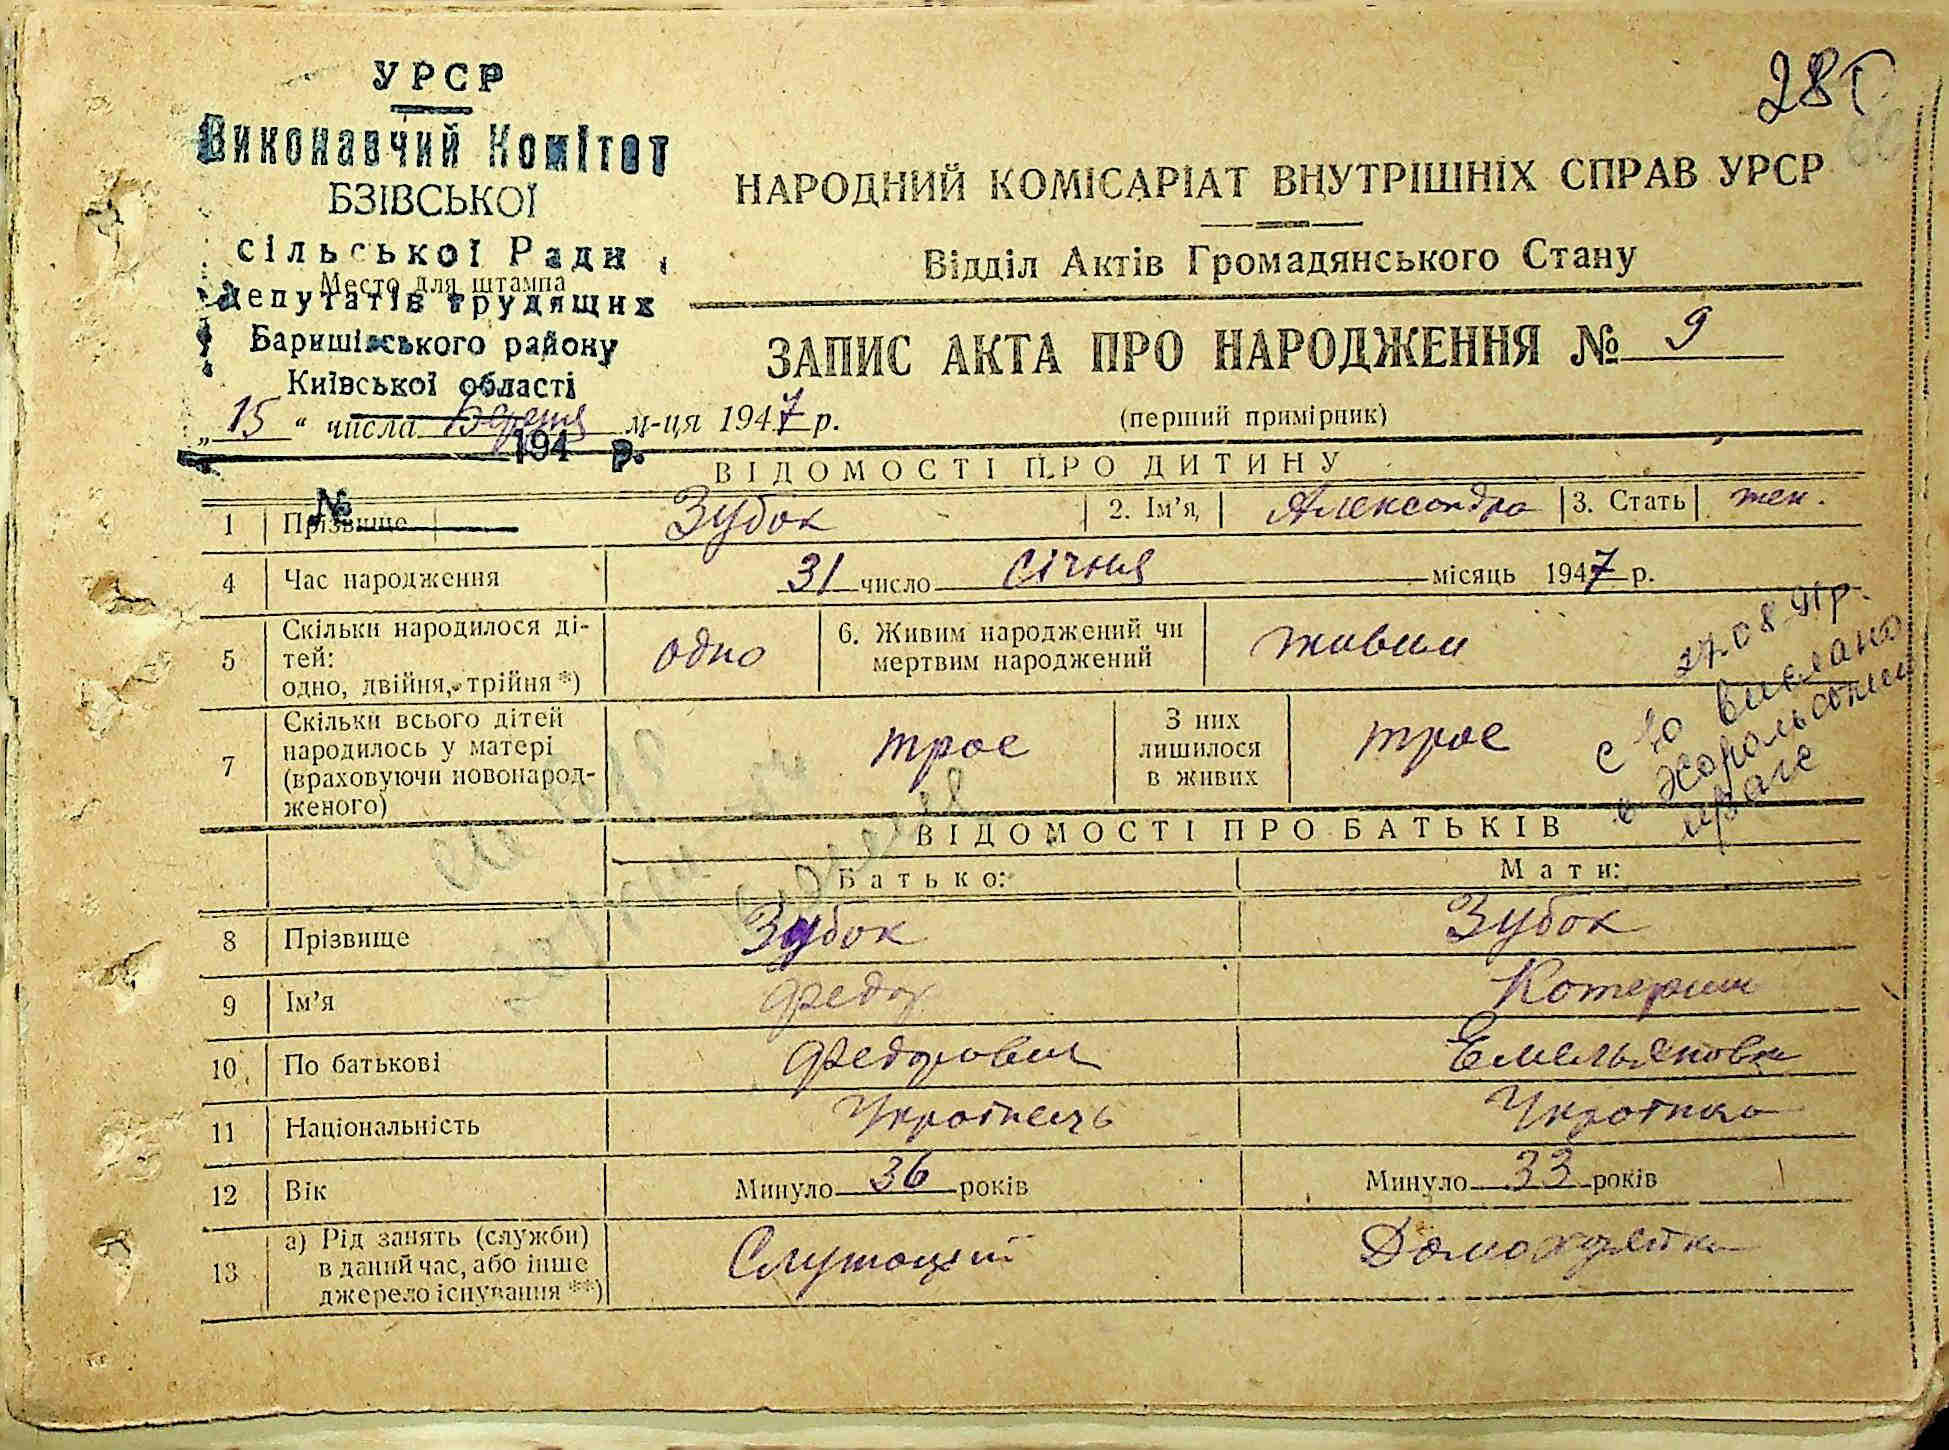 УРСР
Виконавчий Комітет
БЗІВСЬКОЇ
сільської Ради
Место для штампа
Депутатів трудящих
Баришівського району
Київської області
194 р.
№
28
НАРОДНИЙ КОМІСАРІАТ ВНУТРІШНІХ СПРАВ УРСР
Відділ Актів Громадянського Стану
ЗАПИС АКТА ПРО НАРОДЖЕННЯ № 9
„15“ числа Березня м-ця 1947 р. (перший примірник)
ВІДОМОСТІ ПРО ДИТИНУ
1 Прізвище Зубок 2. Ім’я Александра 3. Стать жен.
4 Час народження 31 число Січня місяць 1947 р.
5 Скільки народилося ді-
тей:
одно, двійня, трійня *) одно 6. Живим народжений чи
мертвим народжений живим
7 Скільки всього дітей
народилось у матері
(враховуючи новонарод-
женого) трое З них
лишилося
в живих трое
27.08.91р.
с во выслано
в
ВІДОМОСТІ ПРО БАТЬКІВ
Батько: Мати:
8 Прізвище Зубок Зубок
9 Ім’я Федор Котерина
10 По батькові Федорович Емельяновна
11 Національність
12 Вік Минуло 36 років Минуло 33 років
13 а) Рід занять (служби)
в даний час, або інше
джерело існування **) Служащий Домохозяйка